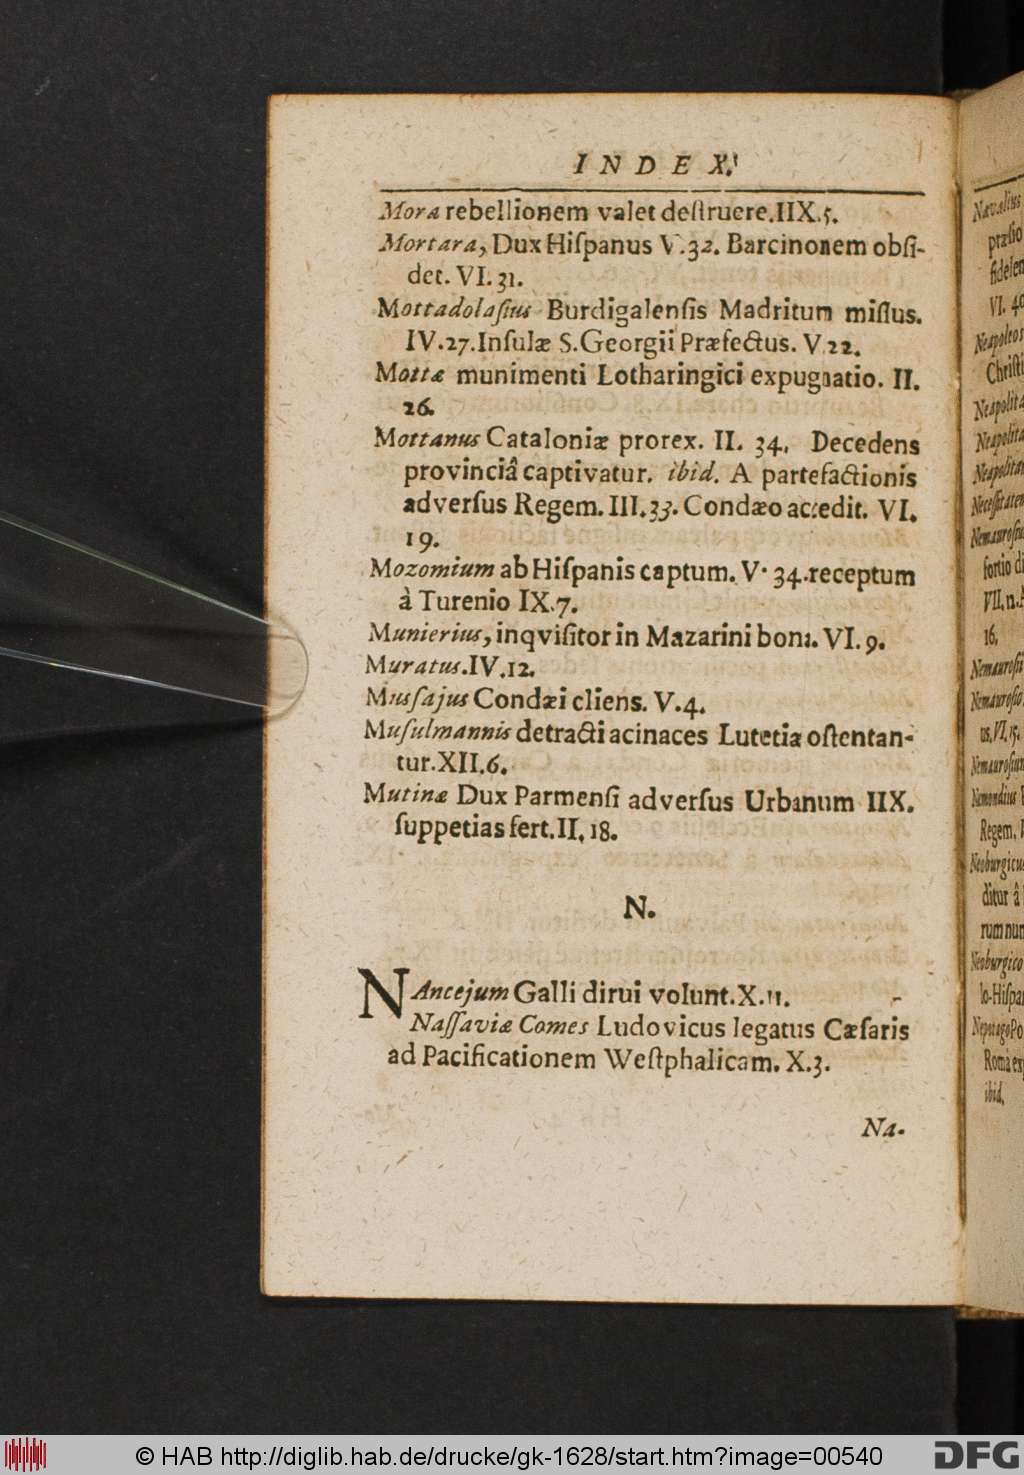 INDEX.
Mora rebellionem valet deſtruere. IIX. 5.
Mortara, Dux Hiſpanus V. 32. Barcinonem obſi-
det. VI. 31.
Mottadolaſius Burdigalenſis Madritum miſſus.
IV. 27. Inſulæ S. Georgii Præfectus. V. 22.
Mottæ munimenti Lotharingici expugnatio. II.
26.
Mottanus Cataloniæ prorex. II. 34. Decedens
provinciâ captivatur. ibid. A parte factionis
adverſus Regem. III. 33. Condæo accedit. VI.
19.
Mozomium ab Hiſpanis captum. V. 34. receptum
à Turenio IX. 7.
Munierius, inqviſitor in Mazarini bona. VI. 9.
Muratus. IV. 12.
Muſſajus Condæi cliens. V. 4.
Muſulmannis detracti acinaces Lutetiæ oſtentan-
tur. XII. 6.
Mutinæ Dux Parmenſi adverſus Urbanum IIX.
ſuppetias fert. II. 18.
N.
NAncejum Galli dirui volunt. X. 11.
Naſſaviæ Comes Ludovicus legatus Cæſaris
ad Pacificationem Weſtphalicam. X. 3.
Na-
Navalius
præſio
VI. 40
Neapoleos
Chriſti
Neapolita
Neapolita
Neapolitan
Neceſſitatem
ſortio di
VII. n.
16.
us. VI. 15.
Nemondius
Regem.
Neoburgicus
ditur â
rum num
Neoburgico
lo-Hiſpan
Romà ex
ibid.
© HAB http://diglib.hab.de/drucke/gk-1628/start.htm?image=00540
DFG